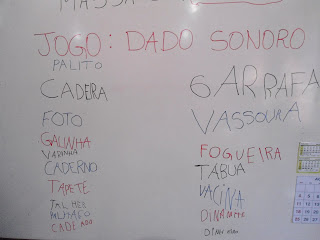 MASSA
JOGO: DADO SONORO
PALITO
CADEIRA
FOTO
GALINHA
VARINHA
CADERNO
TAPETE
PALHAÇO
CADEADO
GARRAFA
VASSOURA
FOGUEIRA
TÁBUA
VACINA
DINAMITE